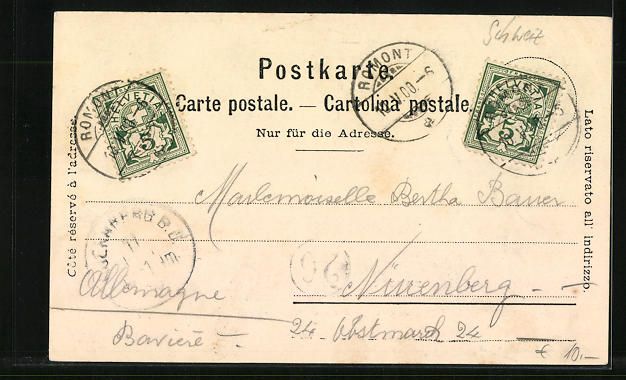 Schweiz
Postkarte.
Carte postale. — Cartolina postale.
Nur für die Adresse.
ROMONT
ROMONT
HELVETIA
5
HELVETIA
5
Côté réservé à l'adresse.
Lato riservato all' indirizzo.
Mademoiselle Bertha Bauer
Nürenberg -
Allemagne
Bavière -
24 Obstmarch 24
€ 10,—